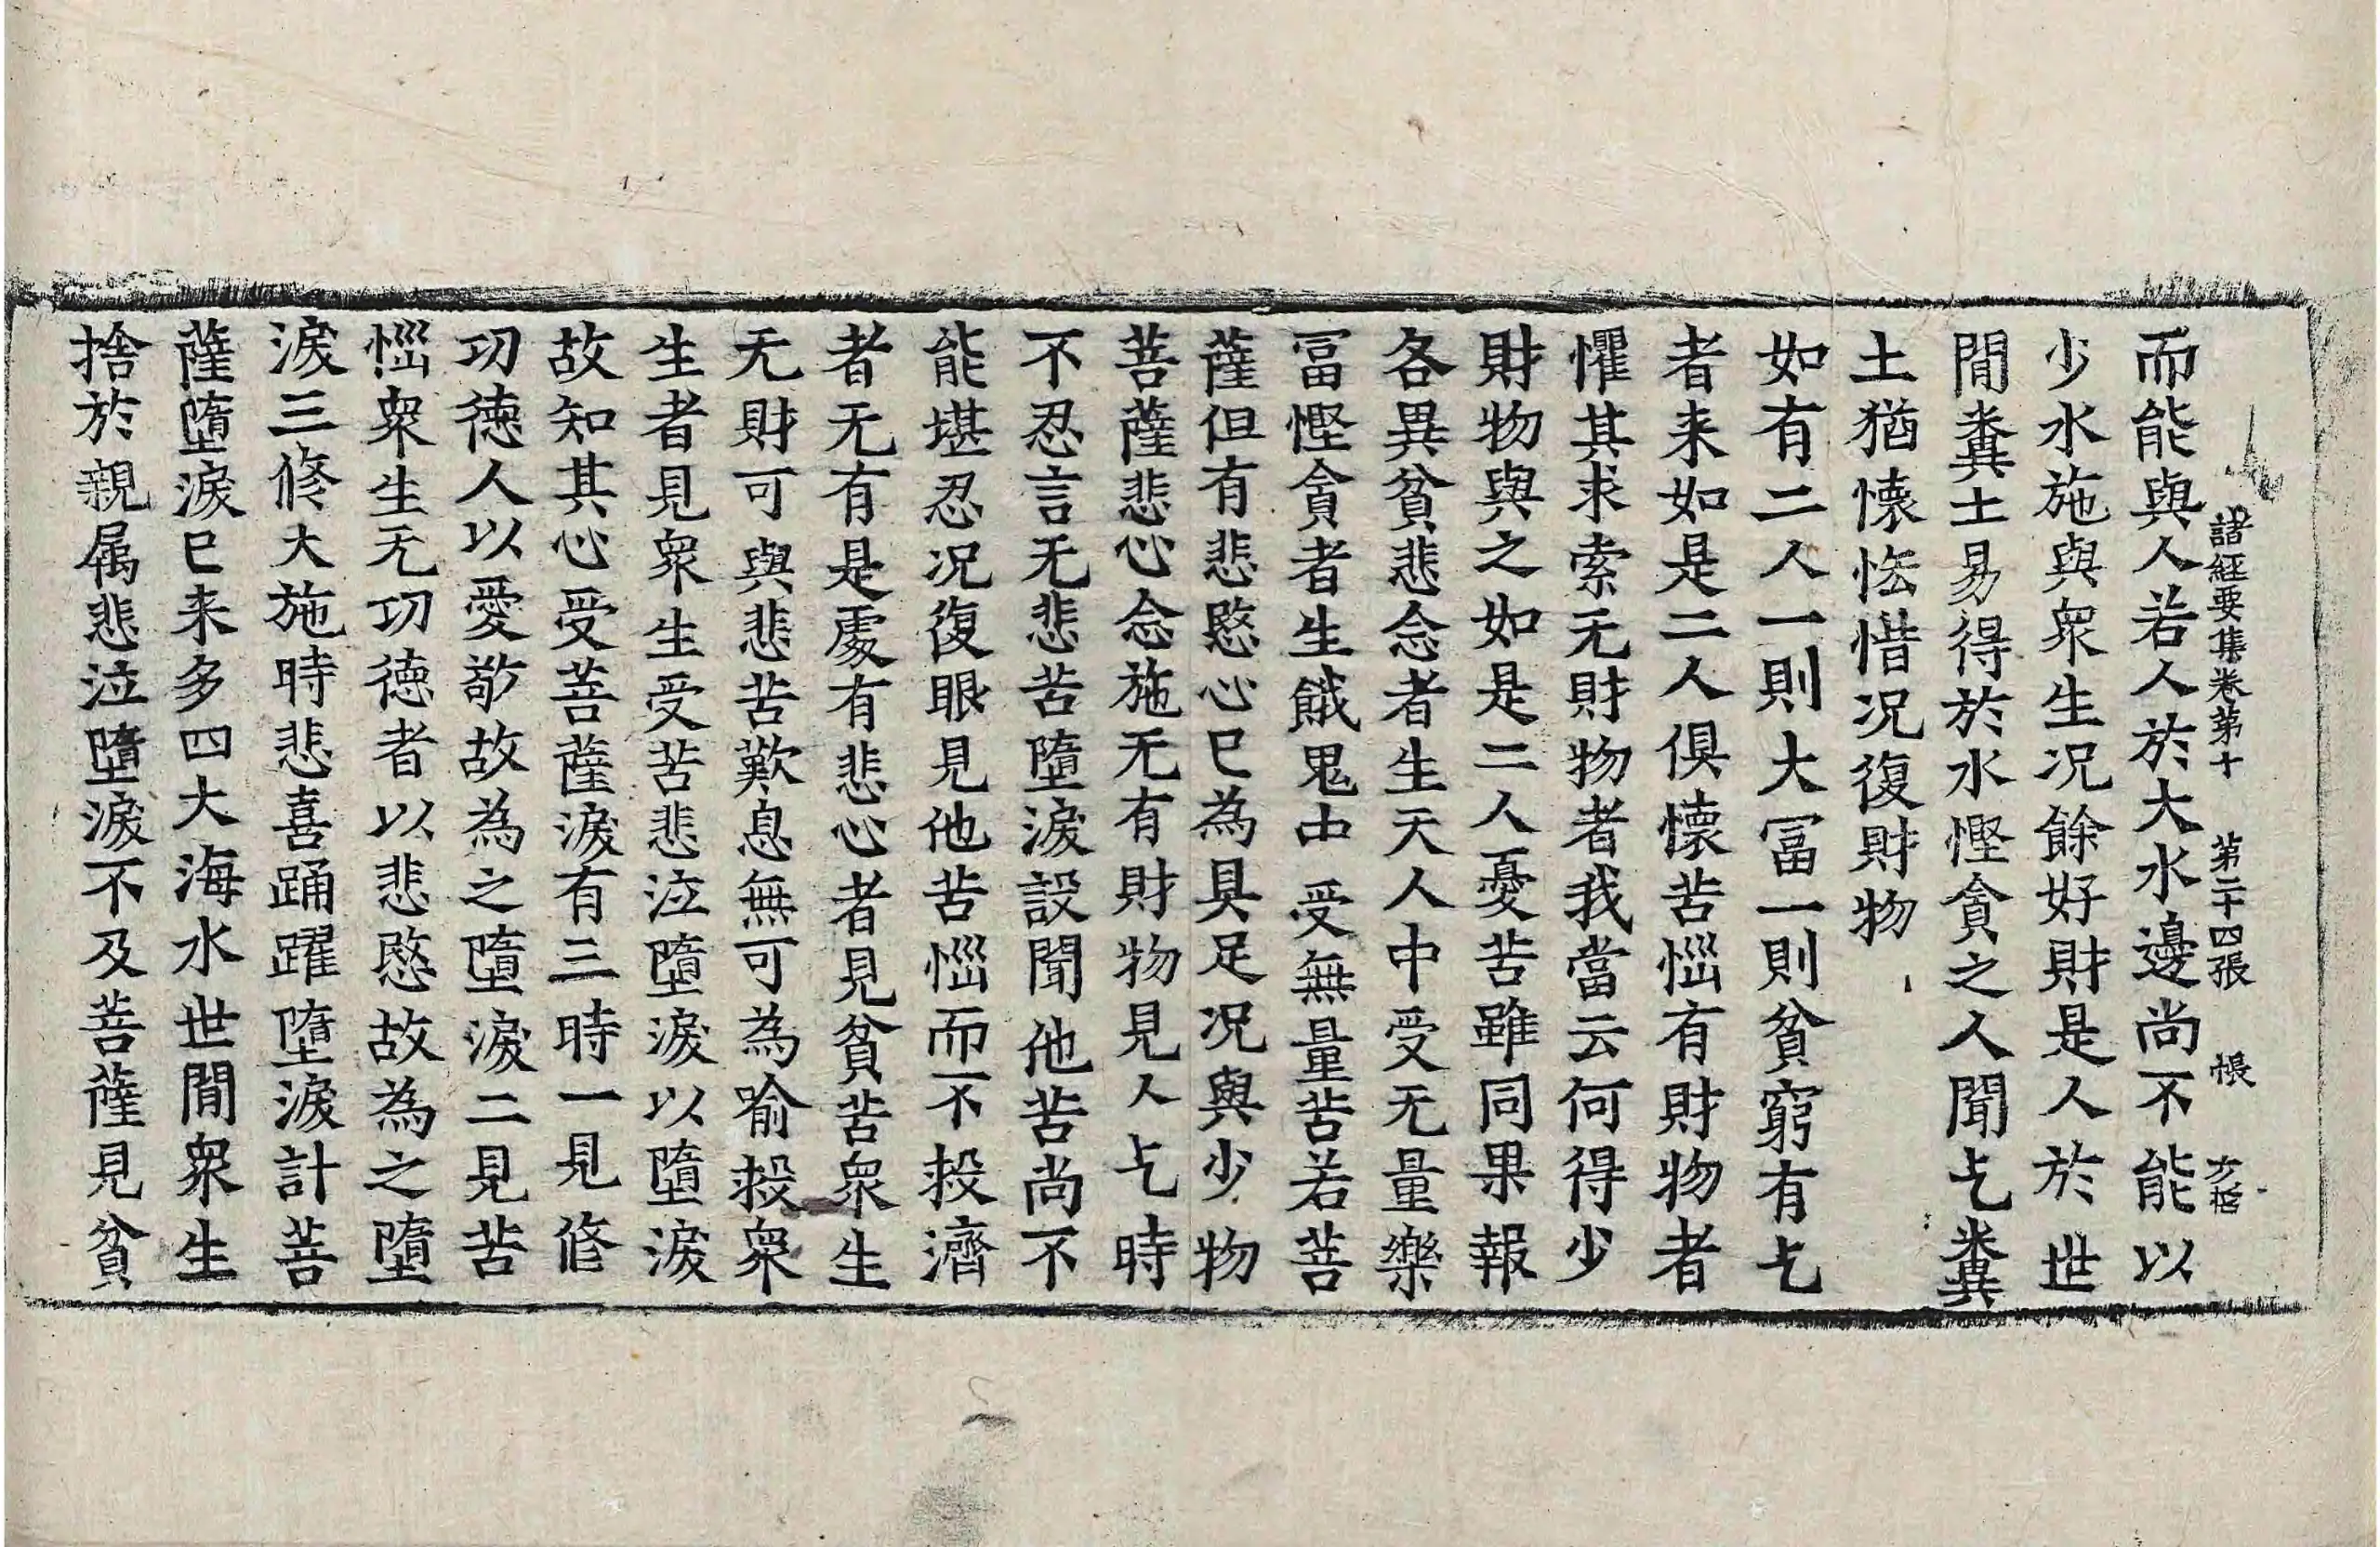 諸經要集卷第十　第二十四張　帳
而能與人若人於大水邊尚不能以
少水施與眾生况餘好財是人於世
間糞土易得於水慳貪之人聞乞糞
土猶懷恡惜况復財物
如有二人一則大冨一則貧窮有乞
者来如是二人俱懷苦惱有財物者
懼其求索无財物者我當云何得少
財物與之如是二人憂苦雖同果報
各異貧悲念者生天人中受无量樂
冨慳貪者生餓鬼中受無量苦若菩
薩但有悲愍心已為具足况與少物
菩薩悲心念施无有財物見人乞時
不忍言无悲苦墮淚設聞他苦尚不
能堪忍况復眼見他苦惱而不救濟
者无有是處有悲心者見貧苦眾生
无財可與悲苦歎息無可為喻救眾
生者見眾生受苦悲泣墮淚以墮淚
故知其心受菩薩淚有三時一見修
功德人以愛敬故為之墮淚二見苦
惱眾生无功德者以悲愍故為之墮
淚三修大施時悲喜踊躍墮淚計菩
薩墮淚已来多四大海水世間眾生
捨於親屬悲泣墮淚不及菩薩見貧